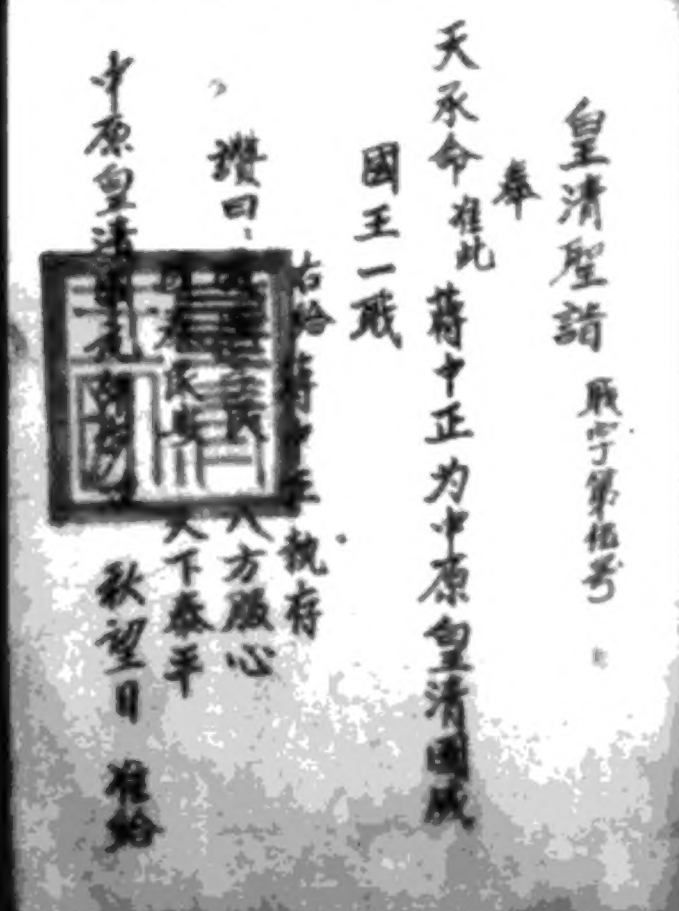 皇清聖詣 职字第伍号
奉
天承命准此 蒋中正为中原皇清國威
國王一职
右给蒋中正执存
讚曰： 八方服心
民安 天下泰平
中原皇清 秋望日 准给